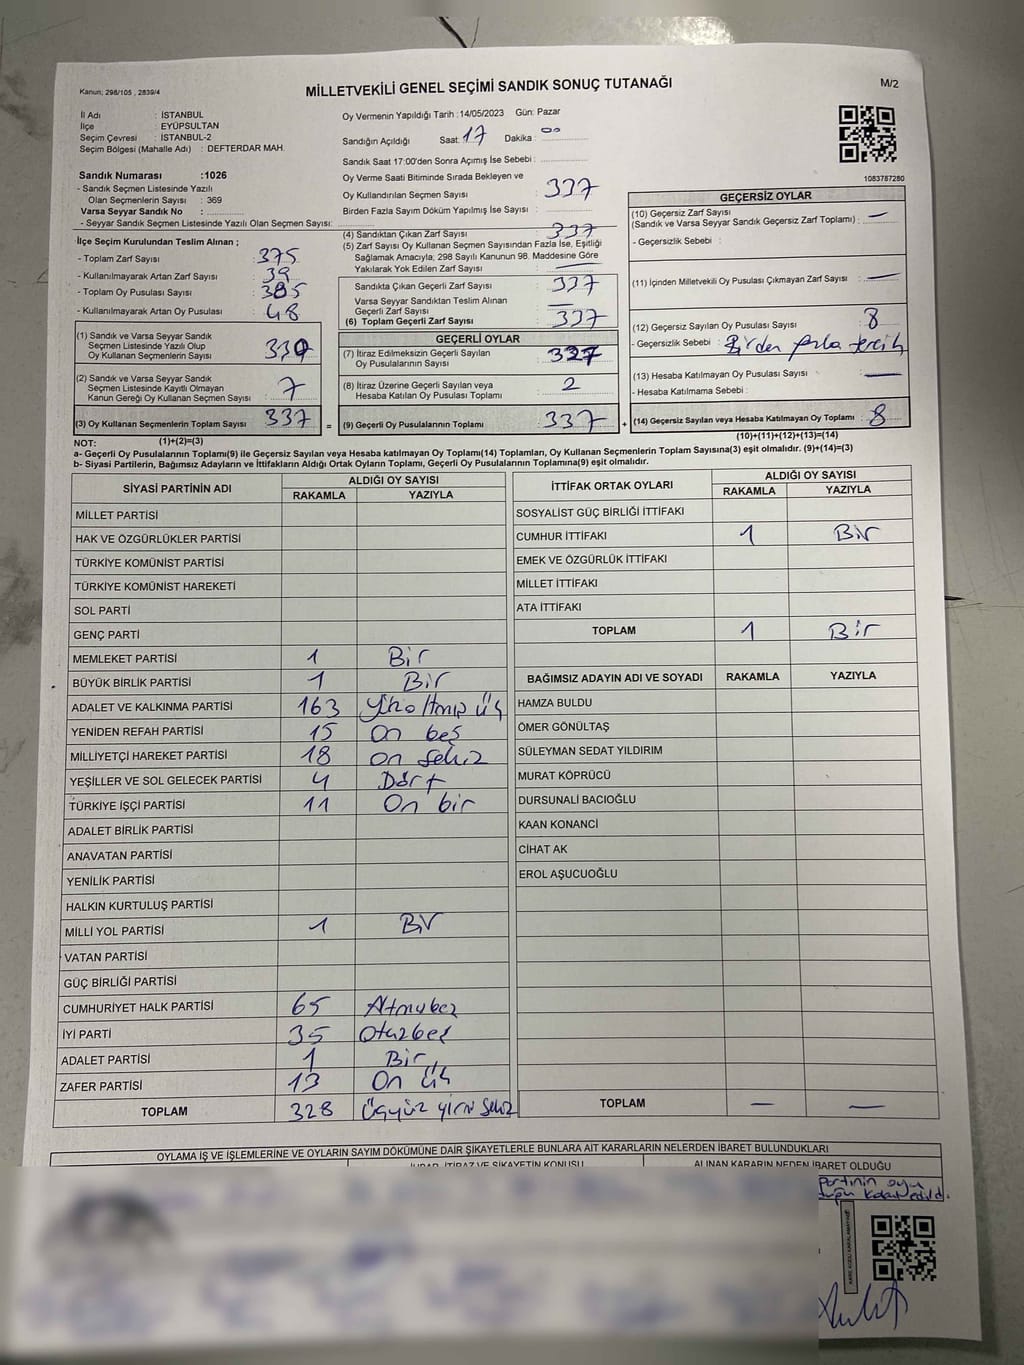 Kanun; 298/105 , 2839/4
MİLLETVEKİLİ GENEL SEÇİMİ SANDIK SONUÇ TUTANAĞI
M/2
İl Adı : İSTANBUL
İlçe : EYÜPSULTAN
Seçim Çevresi : İSTANBUL-2
Seçim Bölgesi (Mahalle Adı) : DEFTERDAR MAH.
Oy Vermenin Yapıldığı Tarih :14/05/2023 Gün: Pazar
Sandığın Açıldığı Saat: 17 Dakika : 00
Sandık Saat 17:00'den Sonra Açımış İse Sebebi :
Oy Verme Saati Bitiminde Sırada Bekleyen ve
Oy Kullandırılan Seçmen Sayısı : 337
Birden Fazla Sayım Döküm Yapılmış İse Sayısı :
1083787280
Sandık Numarası :1026
- Sandık Seçmen Listesinde Yazılı
Olan Seçmenlerin Sayısı : 369
Varsa Seyyar Sandık No :
- Seyyar Sandık Seçmen Listesinde Yazılı Olan Seçmen Sayısı:
İlçe Seçim Kurulundan Teslim Alınan ;
- Toplam Zarf Sayısı : 375
- Kullanılmayarak Artan Zarf Sayısı : 39
- Toplam Oy Pusulası Sayısı : 385
- Kullanılmayarak Artan Oy Pusulası : 48
(1) Sandık ve Varsa Seyyar Sandık
Seçmen Listesinde Yazılı Olup
Oy Kullanan Seçmenlerin Sayısı : 330
(2) Sandık ve Varsa Seyyar Sandık
Seçmen Listesinde Kayıtlı Olmayan
Kanun Gereği Oy Kullanan Seçmen Sayısı : 7
(3) Oy Kullanan Seçmenlerin Toplam Sayısı : 337
(4) Sandıktan Çıkan Zarf Sayısı : 337
(5) Zarf Sayısı Oy Kullanan Seçmen Sayısından Fazla İse, Eşitliği
Sağlamak Amacıyla, 298 Sayılı Kanunun 98. Maddesine Göre
Yakılarak Yok Edilen Zarf Sayısı : —
Sandıkta Çıkan Geçerli Zarf Sayısı : 337
Varsa Seyyar Sandıktan Teslim Alınan
Geçerli Zarf Sayısı : —
(6) Toplam Geçerli Zarf Sayısı : 337
GEÇERLİ OYLAR
(7) İtiraz Edilmeksizin Geçerli Sayılan
Oy Pusulalarının Sayısı : 327
(8) İtiraz Üzerine Geçerli Sayılan veya
Hesaba Katılan Oy Pusulası Toplamı : 2
= (9) Geçerli Oy Pusulalarının Toplamı : 337
GEÇERSİZ OYLAR
(10) Geçersiz Zarf Sayısı
(Sandık ve Varsa Seyyar Sandık Geçersiz Zarf Toplamı) : —
- Geçersizlik Sebebi :
(11) İçinden Milletvekili Oy Pusulası Çıkmayan Zarf Sayısı : —
(12) Geçersiz Sayılan Oy Pusulası Sayısı : 8
- Geçersizlik Sebebi : Birden fazla tercih
(13) Hesaba Katılmayan Oy Pusulası Sayısı : —
- Hesaba Katılmama Sebebi :
+ (14) Geçersiz Sayılan veya Hesaba Katılmayan Oy Toplamı : 8
NOT: (1)+(2)=(3)
(10)+(11)+(12)+(13)=(14)
a- Geçerli Oy Pusulalarının Toplamı(9) ile Geçersiz Sayılan veya Hesaba katılmayan Oy Toplamı(14) Toplamları, Oy Kullanan Seçmenlerin Toplam Sayısına(3) eşit olmalıdır. (9)+(14)=(3)
b- Siyasi Partilerin, Bağımsız Adayların ve İttifakların Aldığı Ortak Oyların Toplamı, Geçerli Oy Pusulalarının Toplamına(9) eşit olmalıdır.
SİYASİ PARTİNİN ADI ALDIĞI OY SAYISI
RAKAMLA YAZIYLA
MİLLET PARTİSİ
HAK VE ÖZGÜRLÜKLER PARTİSİ
TÜRKİYE KOMÜNİST PARTİSİ
TÜRKİYE KOMÜNİST HAREKETİ
SOL PARTİ
GENÇ PARTİ
MEMLEKET PARTİSİ 1 Bir
BÜYÜK BİRLİK PARTİSİ 1 Bir
ADALET VE KALKINMA PARTİSİ 163 Yüzaltmış üç
YENİDEN REFAH PARTİSİ 15 On beş
MİLLİYETÇİ HAREKET PARTİSİ 18 on sekiz
YEŞİLLER VE SOL GELECEK PARTİSİ 4 Dört
TÜRKİYE İŞÇİ PARTİSİ 11 On bir
ADALET BİRLİK PARTİSİ
ANAVATAN PARTİSİ
YENİLİK PARTİSİ
HALKIN KURTULUŞ PARTİSİ
MİLLİ YOL PARTİSİ 1 Bir
VATAN PARTİSİ
GÜÇ BİRLİĞİ PARTİSİ
CUMHURİYET HALK PARTİSİ 65 Altmışbeş
İYİ PARTİ 35 Otuzbeş
ADALET PARTİSİ 1 Bir
ZAFER PARTİSİ 13 On üç
TOPLAM 328 Üçyüz yirmi sekiz
İTTİFAK ORTAK OYLARI ALDIĞI OY SAYISI
RAKAMLA YAZIYLA
SOSYALİST GÜÇ BİRLİĞİ İTTİFAKI
CUMHUR İTTİFAKI 1 Bir
EMEK VE ÖZGÜRLÜK İTTİFAKI
MİLLET İTTİFAKI
ATA İTTİFAKI
TOPLAM 1 Bir
BAĞIMSIZ ADAYIN ADI VE SOYADI RAKAMLA YAZIYLA
HAMZA BULDU
ÖMER GÖNÜLTAŞ
SÜLEYMAN SEDAT YILDIRIM
MURAT KÖPRÜCÜ
DURSUNALİ BACIOĞLU
KAAN KONANCİ
CİHAT AK
EROL AŞUCUOĞLU
TOPLAM — —
OYLAMA İŞ VE İŞLEMLERİNE VE OYLARIN SAYIM DÖKÜMÜNE DAİR ŞİKAYETLERLE BUNLARA AİT KARARLARIN NELERDEN İBARET BULUNDUKLARI
İTİRAZ VE ŞİKAYETİN KONUSU ALINAN KARARIN NEDEN İBARET OLDUĞU
partinin oyu
kabul edildi.